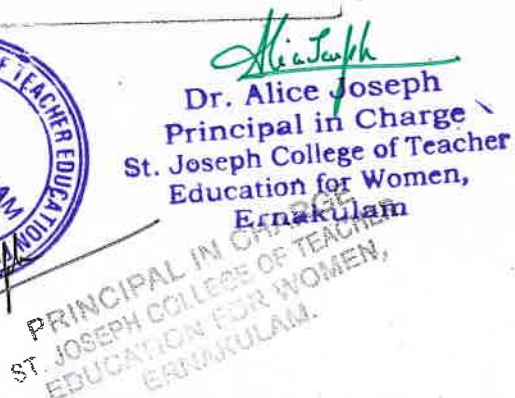 OF TEACHER EDUCATION
Dr. Alice Joseph
Principal in Charge
St. Joseph College of Teacher
Education for Women,
Ernakulam
PRINCIPAL IN CHARGE
ST. JOSEPH COLLEGE OF TEACHER
EDUCATION FOR WOMEN,
ERNAKULAM.